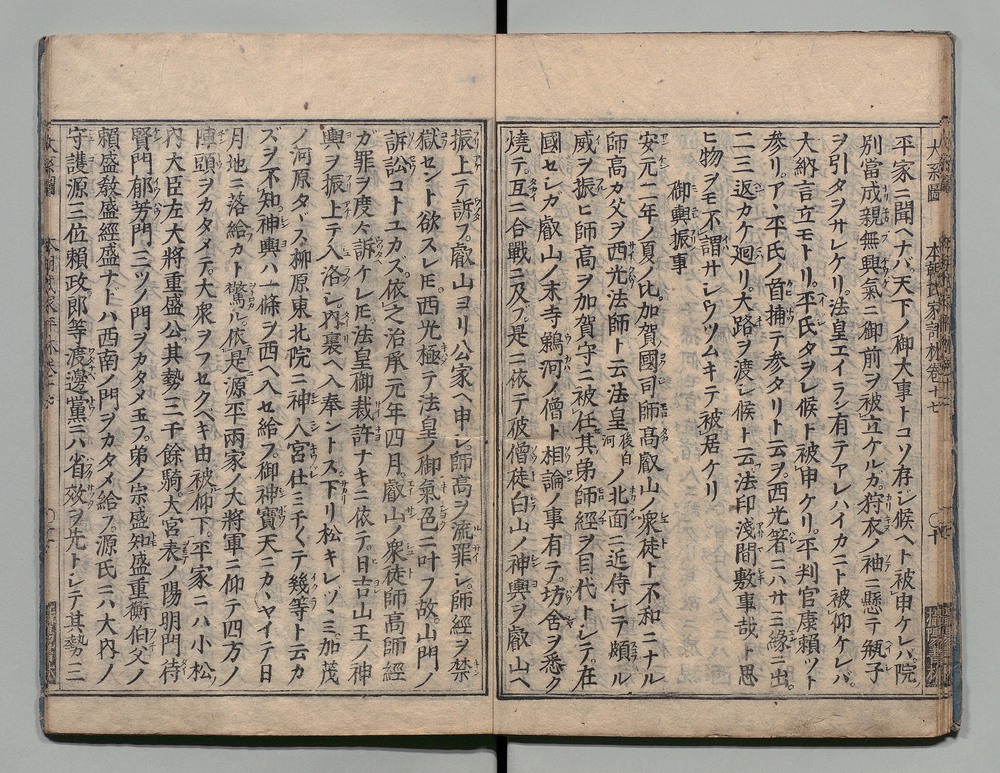 平家ニ聞ヘナバ。天下ノ御大事トコソ存シ候ヘト被申ケレバ。院
別當成親無興氣ニ御前ヲ被立ケルカ。狩衣ノ袖ニ懸テ瓶子
ヲ引タヲサレケリ。法皇エイラン有テアレハイカニト被仰ケレバ。
大納言立モトリ。平氏タヲレ候ト被申ケリ。平判官康頼ツト
参リ。ア、平氏ノ首捕テ参タリト云ヲ。西光箸ニハサミ縁ニ出。
二三返カケ廻リ。大路ヲ渡シ候ト云。法印淺間敷事哉ト思
ヒ物ヲモ不謂サレウツムキテ被居ケリ
御輿振事
安元二年ノ夏ノ比。加賀國司師高叡山ノ衆徒ト不和ニナル
師高カ父ヲ西光法師ト云。法皇後白河ノ北面ニ近侍シテ頗ル
威ヲ振ヒ師高ヲ加賀守ニ被任。其弟師經ヲ目代トシテ。在
國セシガ叡山ノ末寺鵜河ノ僧ト相論ノ事有テ。坊舎ヲ悉ク
燒テ。互ニ合戰ニ及フ。是ニ依テ彼僧徒白山ノ神輿ヲ叡山ヘ
振上テ訴フ。叡山ヨリ公家ヘ申シ師高ヲ流罪シ師經ヲ禁
獄セント欲スレ𪜈。西光極テ法皇ノ御氣色ニ叶フ故。山門ノ
訴訟コトユカス。依之治承元年四月。叡山ノ衆徒師高師經
ガ罪ヲ度々訴ケレ𪜈法皇御裁許ナキニ依テ。日吉山王ノ神
輿ヲ振上テ入洛シ。内裏ヘ入奉ントス。下リ松キレツミ加茂
ノ河原タヾス柳原東北院ニ神人宮仕ミチ〱テ幾等ト云カ
ズヲ不知。神輿ハ一條ヲ西ヘ入セ給。御神寳天ニカヽヤイテ日
月地ニ落給カト驚ル。依是源平兩家ノ大將軍ニ仰テ四方ノ
陣頭ヲカタメテ。大衆ヲフセクベキ由被仰下。平家ニハ小松
内大臣左大將重盛公。其勢三千餘騎。大宮表ノ陽明門待
賢門郁芳門三ツノ門ヲカタメ玉フ。弟ノ宗盛知盛重衡伯父ノ
頼盛敎盛經盛ナドハ西南ノ門ヲカタメ給フ。源氏ニハ大内ノ
守護源三位頼政郎等渡邊黨ニハ省效ヲ先トシテ其勢三